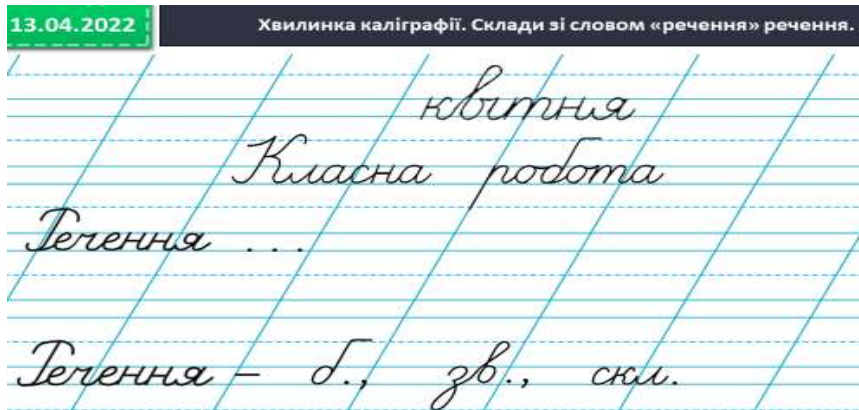 13.04.2022 Хвилинка каліграфії. Склади зі словом «речення» речення.
квітня
Класна робота
Речення ...
Речення – б., зв., скл.